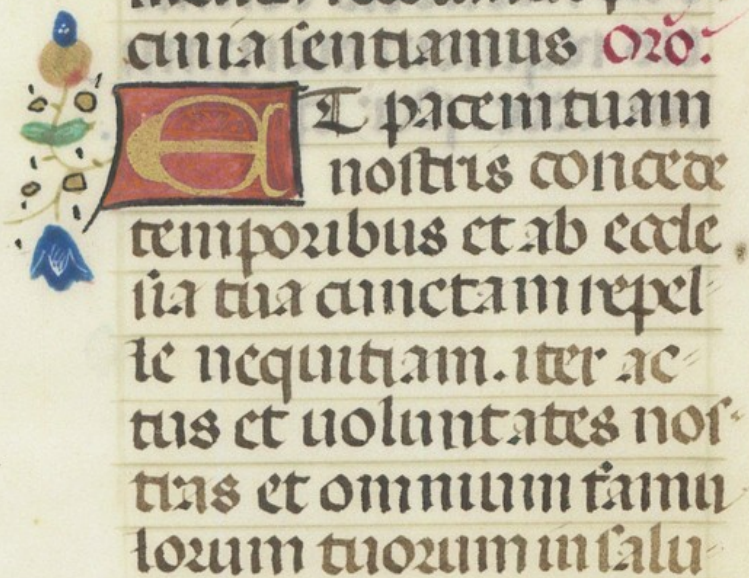 cinia sentiamus Orō:
ET pacem tuam
nostris concede
temporibus et ab eccle
sia tua cunctam repel-
le nequitiam. iter ac-
tus et uoluntates nos-
tras et omnium famu
lorum tuorum in salu-